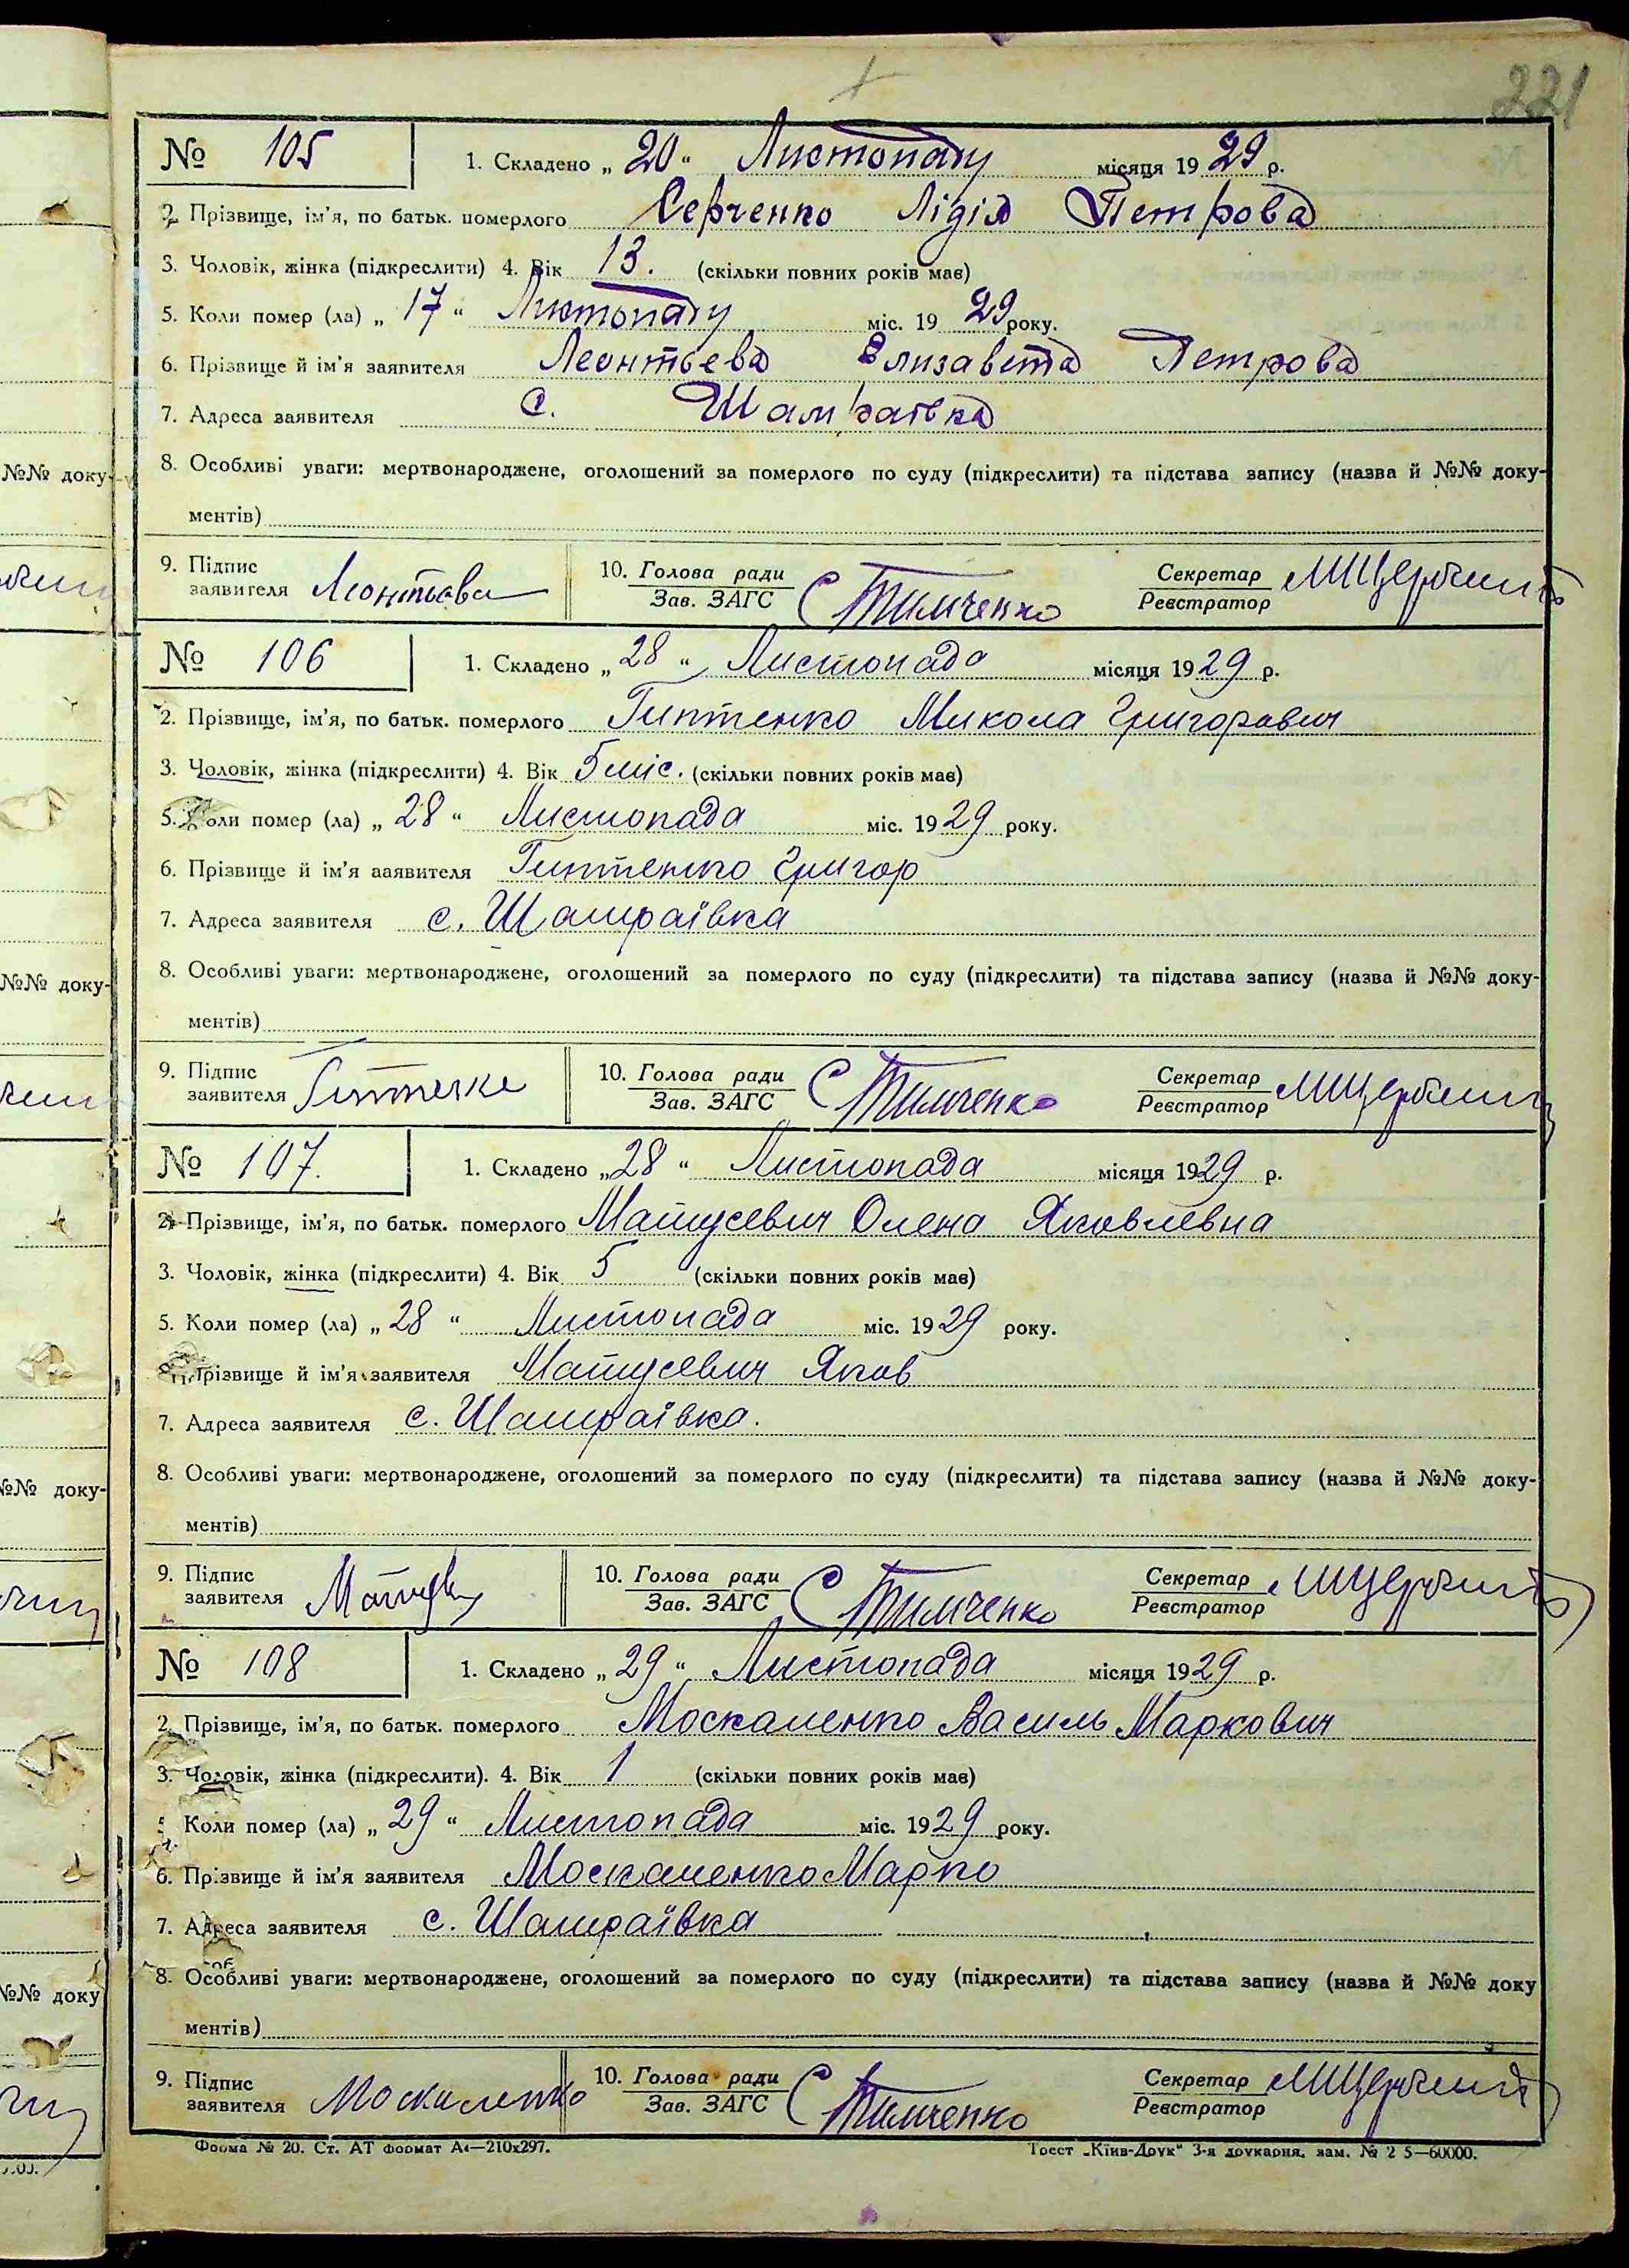 221
№ 105 1. Складено „ 20 “ Листопаду місяця 19 29 р.
2. Прізвище, ім'я, по батьк. померлого Серченко Лідія Петрова
3. Чоловік, жінка (підкреслити) 4. Вік 13. (скільки повних років має)
5. Коли помер (ла) „ 17 “ Листопаду міс. 19 29 року.
6. Прізвище й ім'я заявителя Леонтьева Елизавета Петрова
7. Адреса заявителя С. Шамраївка
8. Особливі уваги: мертвонароджене, оголошений за померлого по суду (підкреслити) та підстава запису (назва й №№ доку-
ментів)
9. Підпис заявителя Леонтьева 10. Голова ради Зав. ЗАГС С Тимченко Секретар Реєстратор
№ 106 1. Складено „ 28 “ Листопада місяця 19 29 р.
2. Прізвище, ім'я, по батьк. померлого Гиптенко Микола Григорович
3. Чоловік, жінка (підкреслити) 4. Вік 5 міс. (скільки повних років має)
5. Коли помер (ла) „ 28 “ Листопада міс. 19 29 року.
6. Прізвище й ім'я заявителя Гиптенко Григор
7. Адреса заявителя с. Шамраївка
8. Особливі уваги: мертвонароджене, оголошений за померлого по суду (підкреслити) та підстава запису (назва й №№ доку-
ментів)
9. Підпис заявителя Гиптенко 10. Голова ради Зав. ЗАГС С Тимченко Секретар Реєстратор
№ 107. 1. Складено „ 28 “ Листопада місяця 19 29 р.
2. Прізвище, ім'я, по батьк. померлого Матусевич Олена Яковлевна
3. Чоловік, жінка (підкреслити) 4. Вік 5 (скільки повних років має)
5. Коли помер (ла) „ 28 “ Листопада міс. 19 29 року.
Прізвище й ім'я заявителя Матусевич Яков
7. Адреса заявителя с. Шамраївка.
8. Особливі уваги: мертвонароджене, оголошений за померлого по суду (підкреслити) та підстава запису (назва й №№ доку-
ментів)
9. Підпис заявителя 10. Голова ради Зав. ЗАГС С Тимченко Секретар Реєстратор
№ 108 1. Складено „ 29 “ Листопада місяця 19 29 р.
2. Прізвище, ім'я, по батьк. померлого Москаленко Василь Маркович
3. Чоловік, жінка (підкреслити). 4. Вік 1 (скільки повних років має)
Коли помер (ла) „ 29 “ Листопада міс. 19 29 року.
6. Прізвище й ім'я заявителя Москаленко Марко
7. Адреса заявителя с. Шамраївка
8. Особливі уваги: мертвонароджене, оголошений за померлого по суду (підкреслити) та підстава запису (назва й №№ доку
ментів)
9. Підпис заявителя Москаленко 10. Голова ради Зав. ЗАГС С Тимченко Секретар Реєстратор
Форма № 20. Ст. АТ формат А4—210x297. Трест „Київ-Друк“ 3-я друкарня, зам. № 2 5—60000.